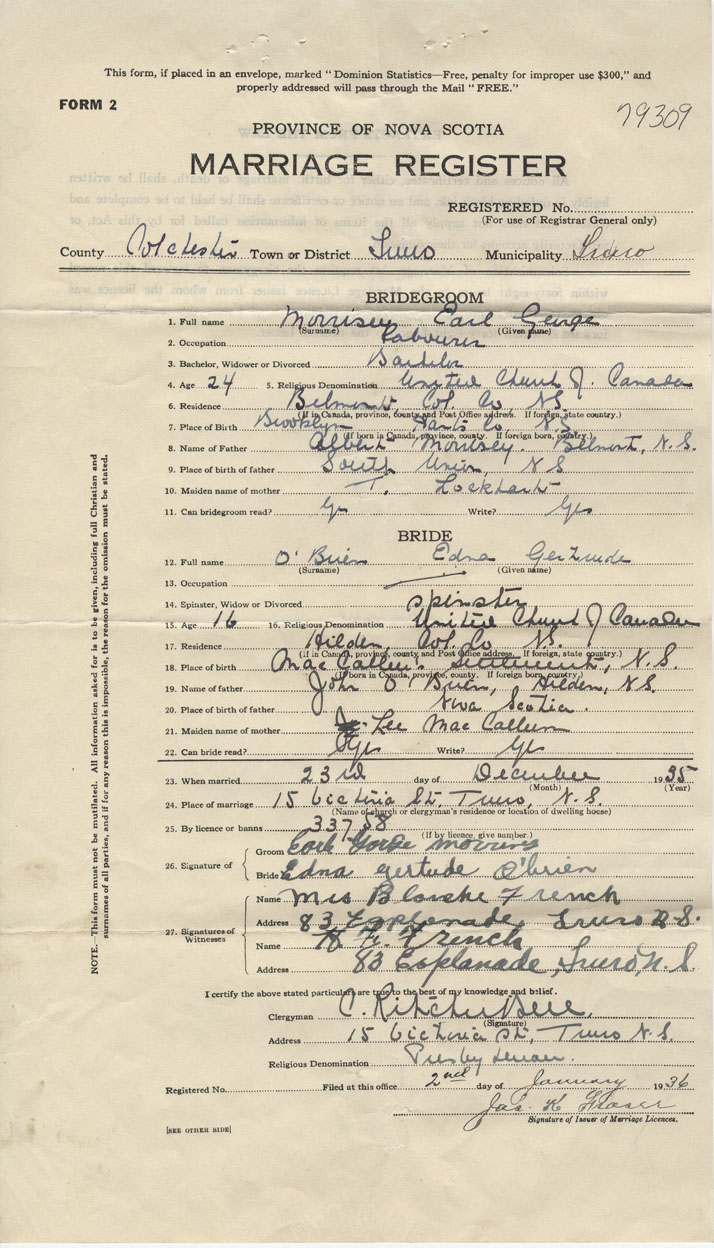 This form, if placed in an envelope, marked "Dominion Statistics—Free, penalty for improper use $300," and
properly addressed will pass through the Mail "FREE."
FORM 2
79309
PROVINCE OF NOVA SCOTIA
MARRIAGE REGISTER
REGISTERED No.
(For use of Registrar General only)
County Colchester Town or District Truro Municipality Truro
BRIDEGROOM
1. Full name Morrisey Earl George
(Surname) (Given name)
2. Occupation Labourer
3. Bachelor, Widower or Divorced Bachelor
4. Age 24 5. Religious Denomination United Church of Canada
6. Residence Belmont Col. Co NS
(If in Canada, province, county and Post Office address. If foreign, state country.)
7. Place of Birth Brooklyn Hants Co NS
(If born in Canada, province, county. If foreign born, country.)
8. Name of Father Albert Morrisey. Belmont, N.S.
9. Place of birth of father South Union, NS
10. Maiden name of mother Lockhart
11. Can bridegroom read? Yes Write? Yes
BRIDE
12. Full name O'Brien Edna Gertrude
(Surname) (Given name)
13. Occupation
14. Spinster, Widow or Divorced Spinster
15. Age 16 16. Religious Denomination United Church of Canada
17. Residence Hilden, Col. Co NS.
(If in Canada, province, county and Post Office address. If foreign, state country.)
18. Place of birth MacCallum's Settlement, N.S.
(If born in Canada, province, county. If foreign born, country.)
19. Name of father John O'Brien, Hilden, N.S.
20. Place of birth of father Nova Scotia.
21. Maiden name of mother Lee MacCallum
22. Can bride read? Yes Write? Yes
23. When married 23rd day of December 1935
(Month) (Year)
24. Place of marriage 15 Victoria St. Truro, N.S.
(Name of church or clergyman's residence or location of dwelling house)
25. By licence or banns 33758
(if by licence, give number.)
26. Signature of
Groom Earl Gorge
Bride Edna gertude O'brien
27. Signatures of Witnesses
Name Mrs French
Address 83 Esplanade, Truro N.S.
Name French
Address 83 Esplanade, Truro, N.S.
I certify the above stated particulars are true to the best of my knowledge and belief.
Clergyman C. Ritchie Bell
(Signature)
Address 15 Victoria St, Truro N.S.
Religious Denomination Presbyterian.
Registered No. Filed at this office 2nd day of January 1936
Jas. K Fraser
Signature of Issuer of Marriage Licences.
[SEE OTHER SIDE]
NOTE.—This form must not be mutilated. All information asked for is to be given, including full Christian and
surnames of all parties, and if for any reason this is impossible, the reason for the omission must be stated.